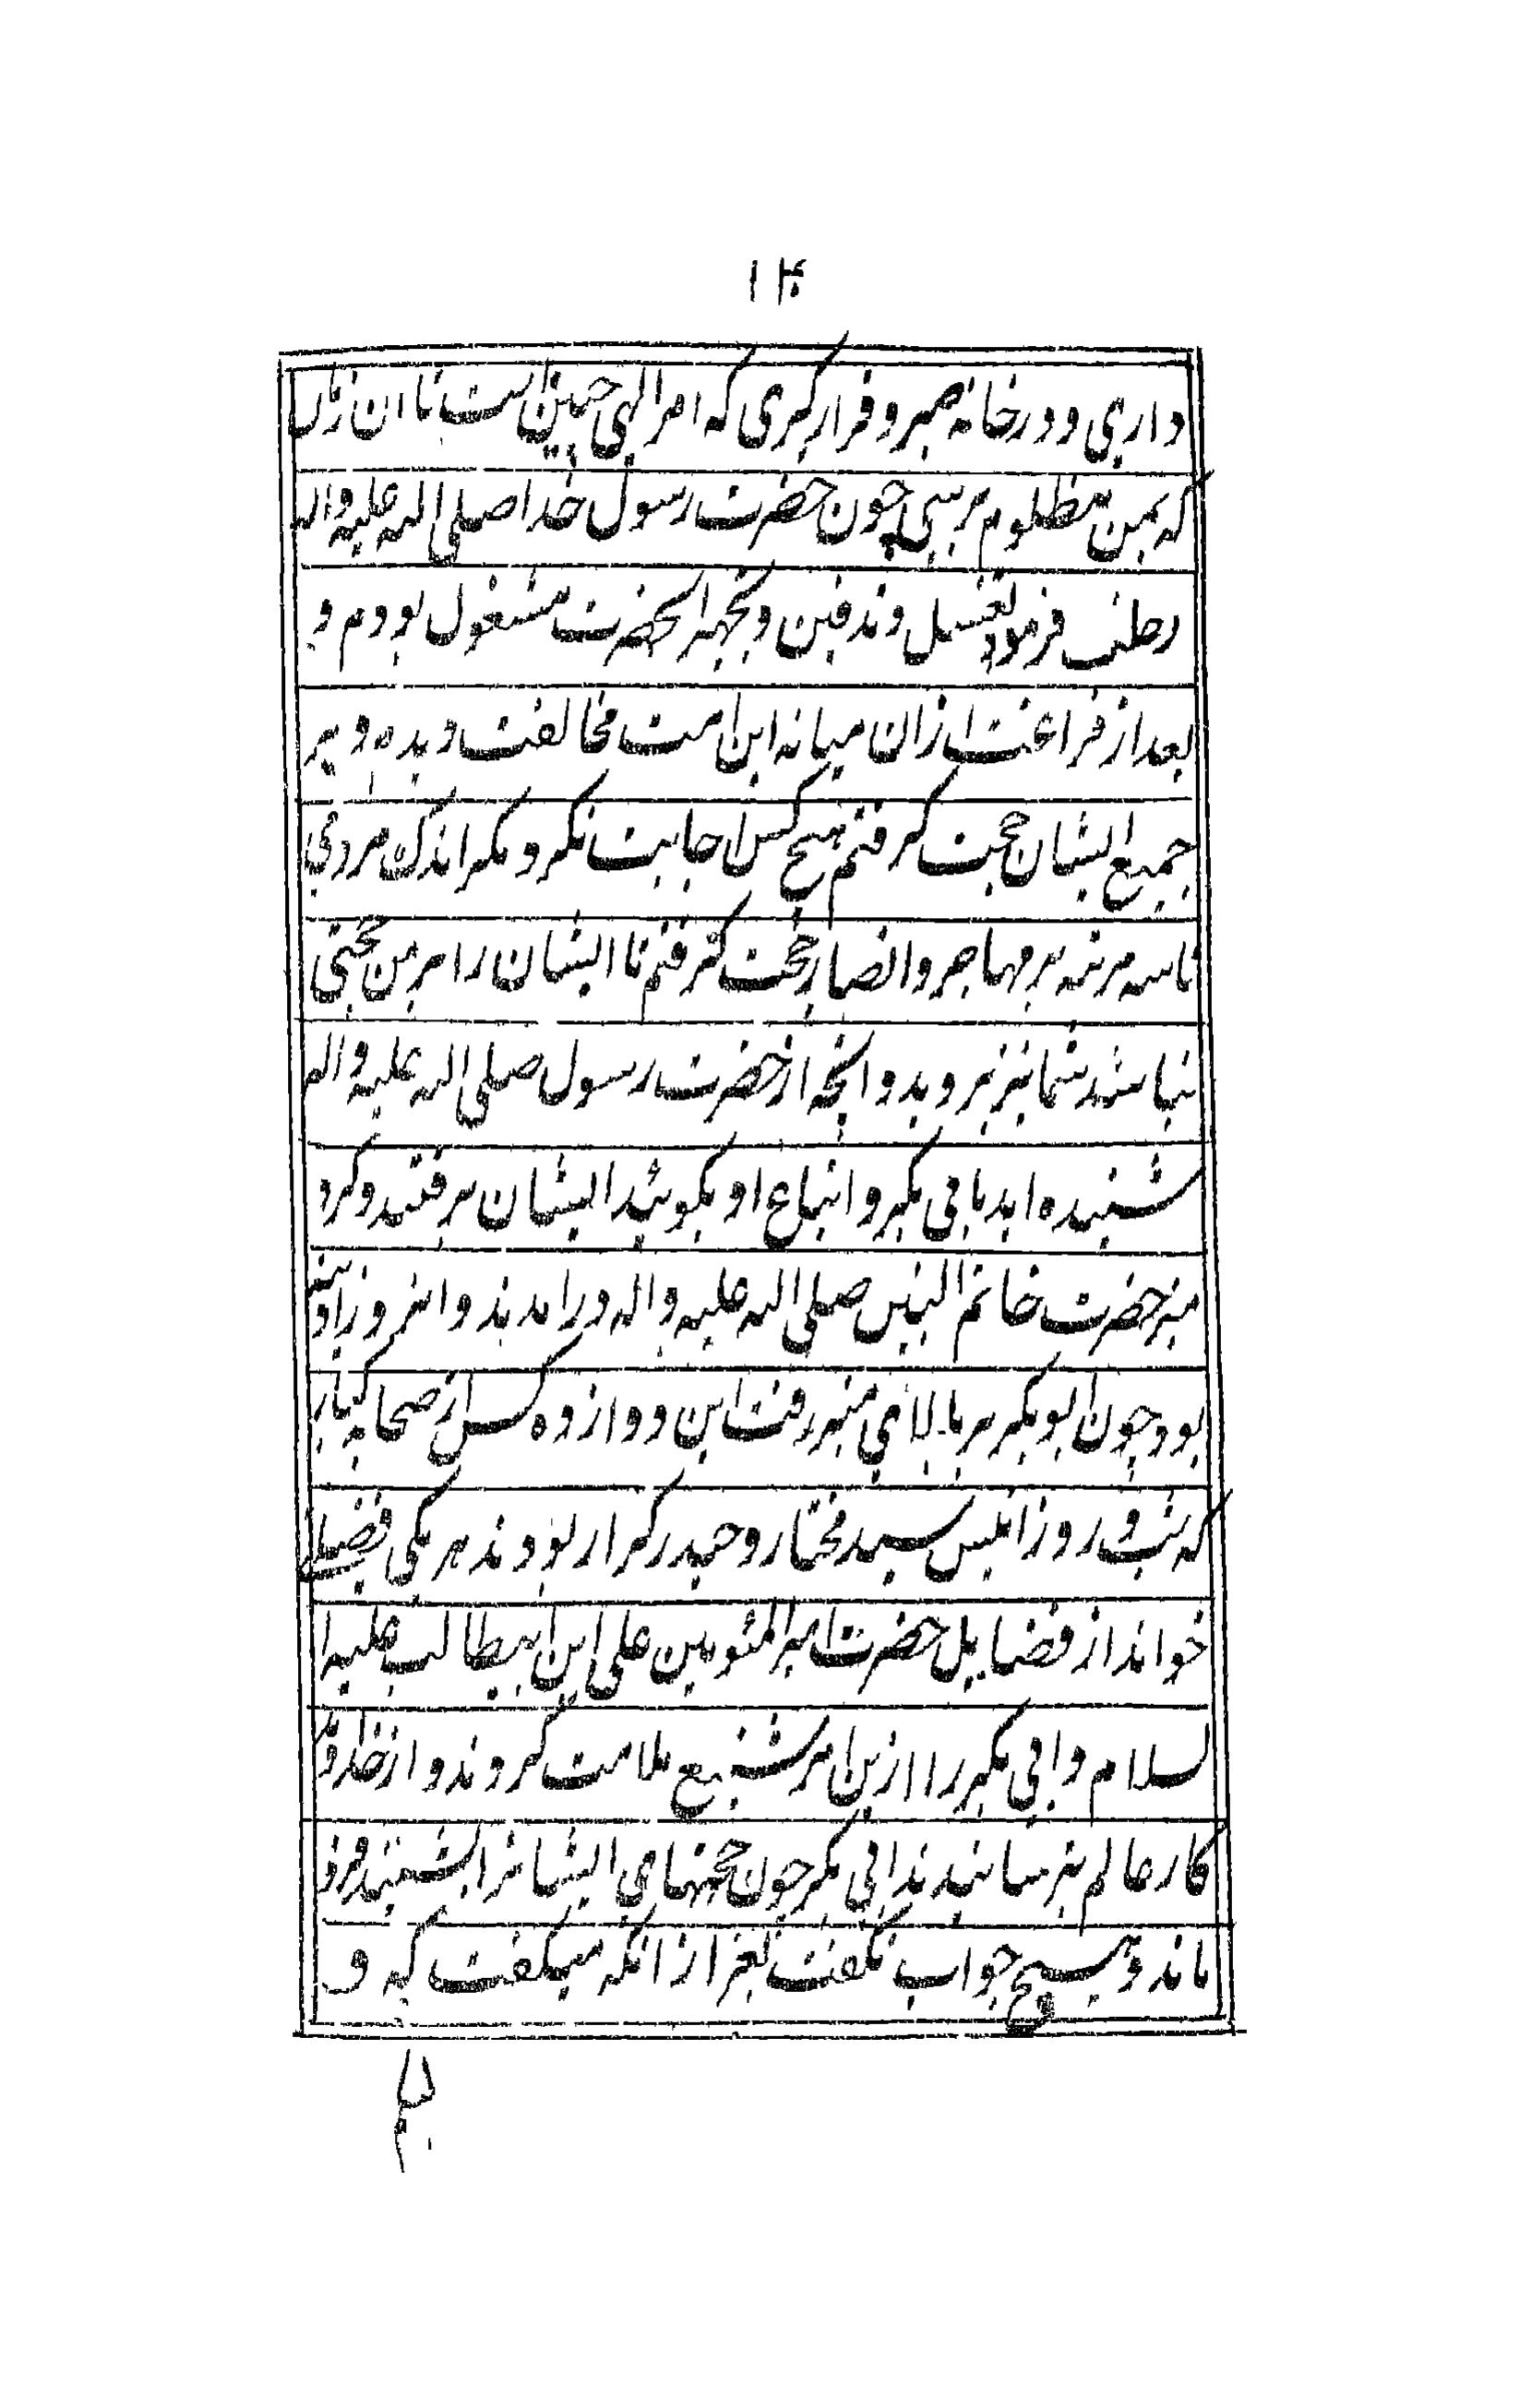 ۱۴
داری و در خانه صبر و قرار گیری که امر الهی چنین است تا ان زمان
که بمن مظلوم برسی چون حضرت رسول خدا صلی الله علیه واله
رحلت فرمود بغسیل و تدفین و تجهیز انحضرت مشغول بودم و
بعد از فراغت از ان میانه این امت مخالفت دیده و بر
جمیع ایشان حجت گرفتم هیچ کس اجابت نکرد مگر اندک مردمی
تا سه مرتبه بر مهاجر و انصار حجت گرفتم تا ایشان را بر من حجتی
نباشد شما نیز بروید و انچه از حضرت رسول صلی الله علیه واله
شنیده اید با ابی بکر و اتباع او بگویید ایشان برفتند و گرد
منبر حضرت خاتم النبیین صلی الله علیه واله درامدند و انروز
بود چون ابو بکر بر بالای منبر رفت این دوازده کس از صحابه کبار
که شب و روز انیس سید مختار و حیدر کرار بودند هر یکی فضیلتی
خواند از فضایل حضرت امیر المئومنین علی ابن ابیطالب علیه ا
لسلام و ابی بکر را ازین امر شنیع ملامت کردند و از خداوند
کار عالم بترسانیدند ابی بکر چون حجتهای ایشانرا بشنید فرو
ماند و هیچ جواب نگفت بغیر از انکه میگفت که و